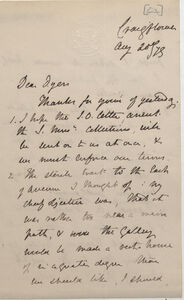 Craigflower
Aug 20th/79
Dear Dyer
Thanks for yours of yesterday.
1. I hope the I.O. letter, anent
the I. Mus. collections, will
be sent on to us at once, &
we must enforce our terms.
2. The should want to the East
of museum I thought of; my
chief objection was, that it
was rather too near a main
path, & were the Gallery
would be made a rest house
of in a greater degree than
we should like, I should